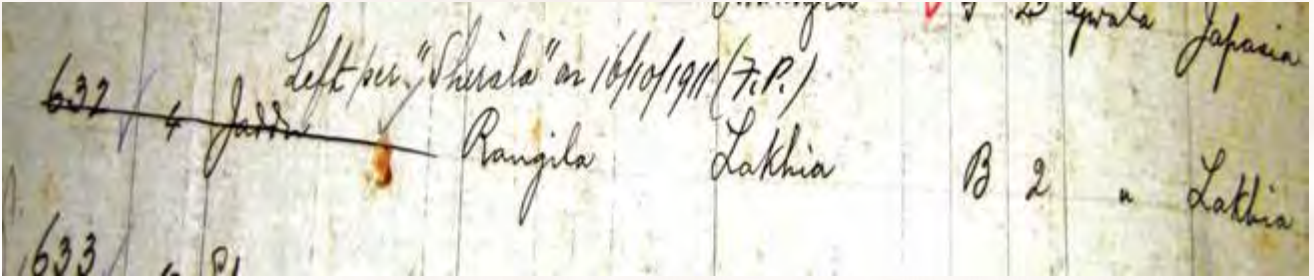 B 2 Gwala Japasia
Left per "Shirala" on 16/10/1911 (F.P.)
632 4 Jaddu Rangila Lakhia B 2 " Lakhia
633